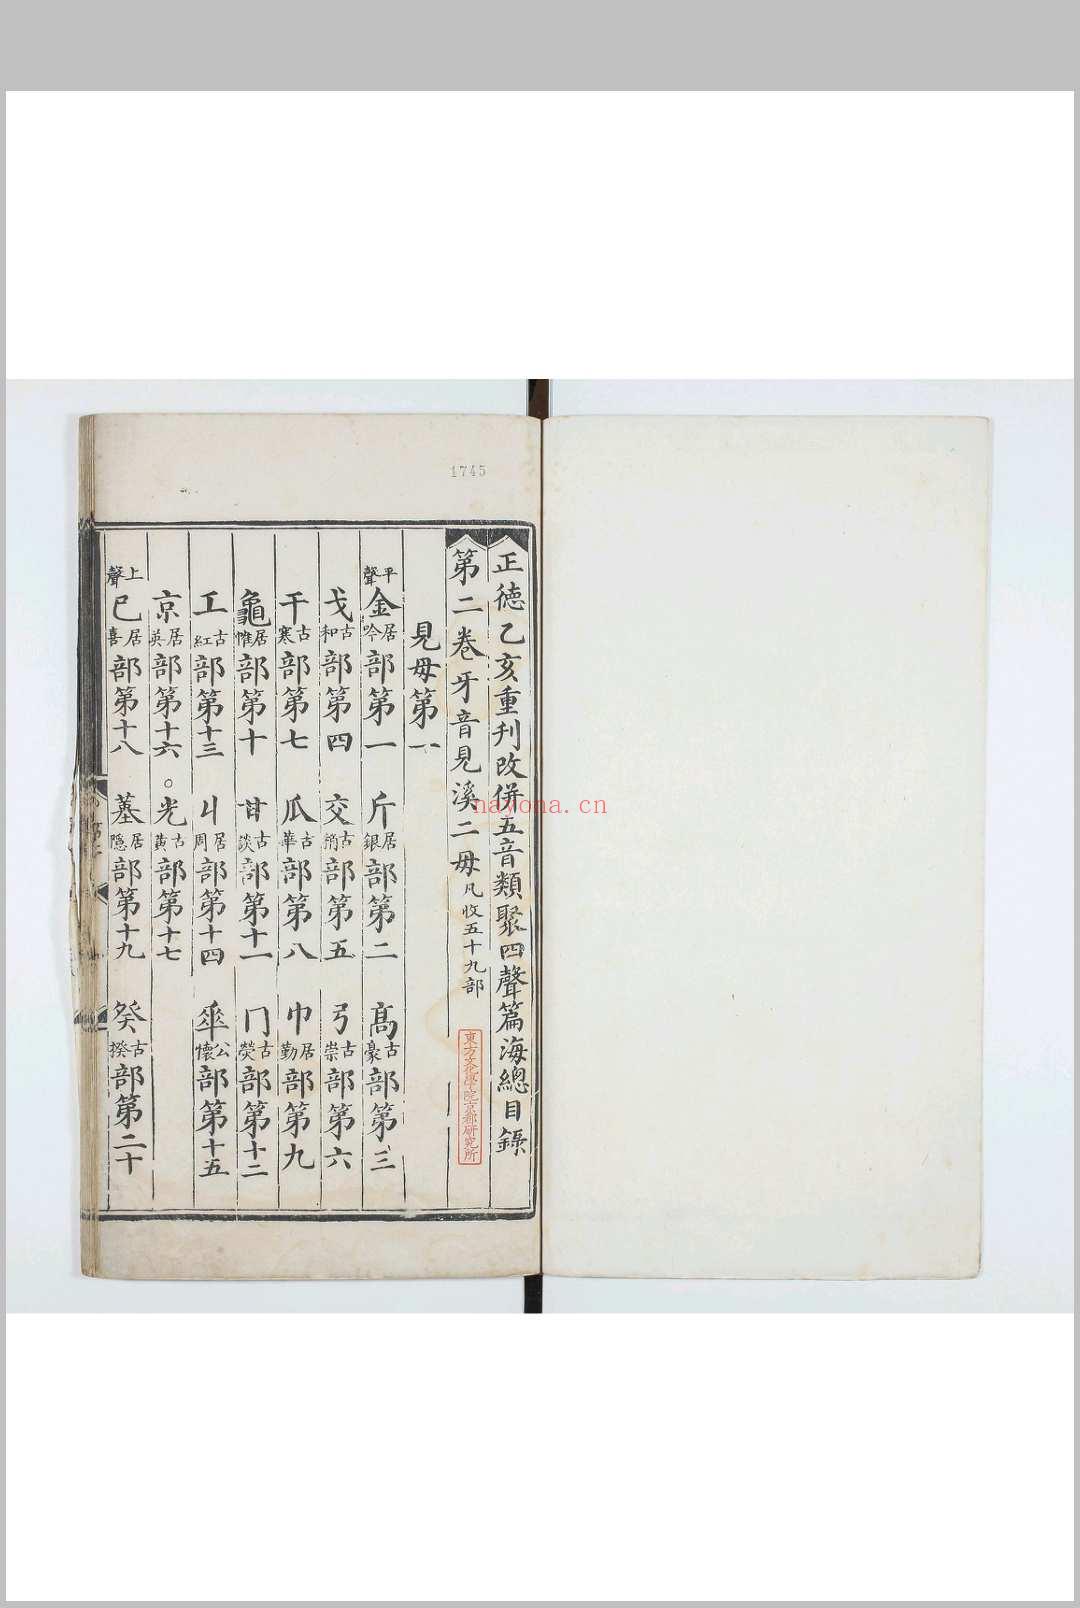 1745
正德乙亥重刋改併五音類聚四聲篇海總目錄
第二卷牙音見溪二毋凡收五十九部
東方文化學院京都研究所
見毋第一
平聲金居吟部第一 斤居銀部第二 高古豪部第三
戈古和部第四 交古部第五 弓古崇部第六
干古寒部第七 瓜古華部第八 巾居勤部第九
龜居惟部第十 甘古談部第十一 冂古熒部第十二
工古紅部第十三 丩居周部第十四 𠦬公懷部第十五
京居英部第十六。光古黃部第十七
上聲己居喜部第十八 居隱部第十九 癸古揆部第二十
nayona.cn